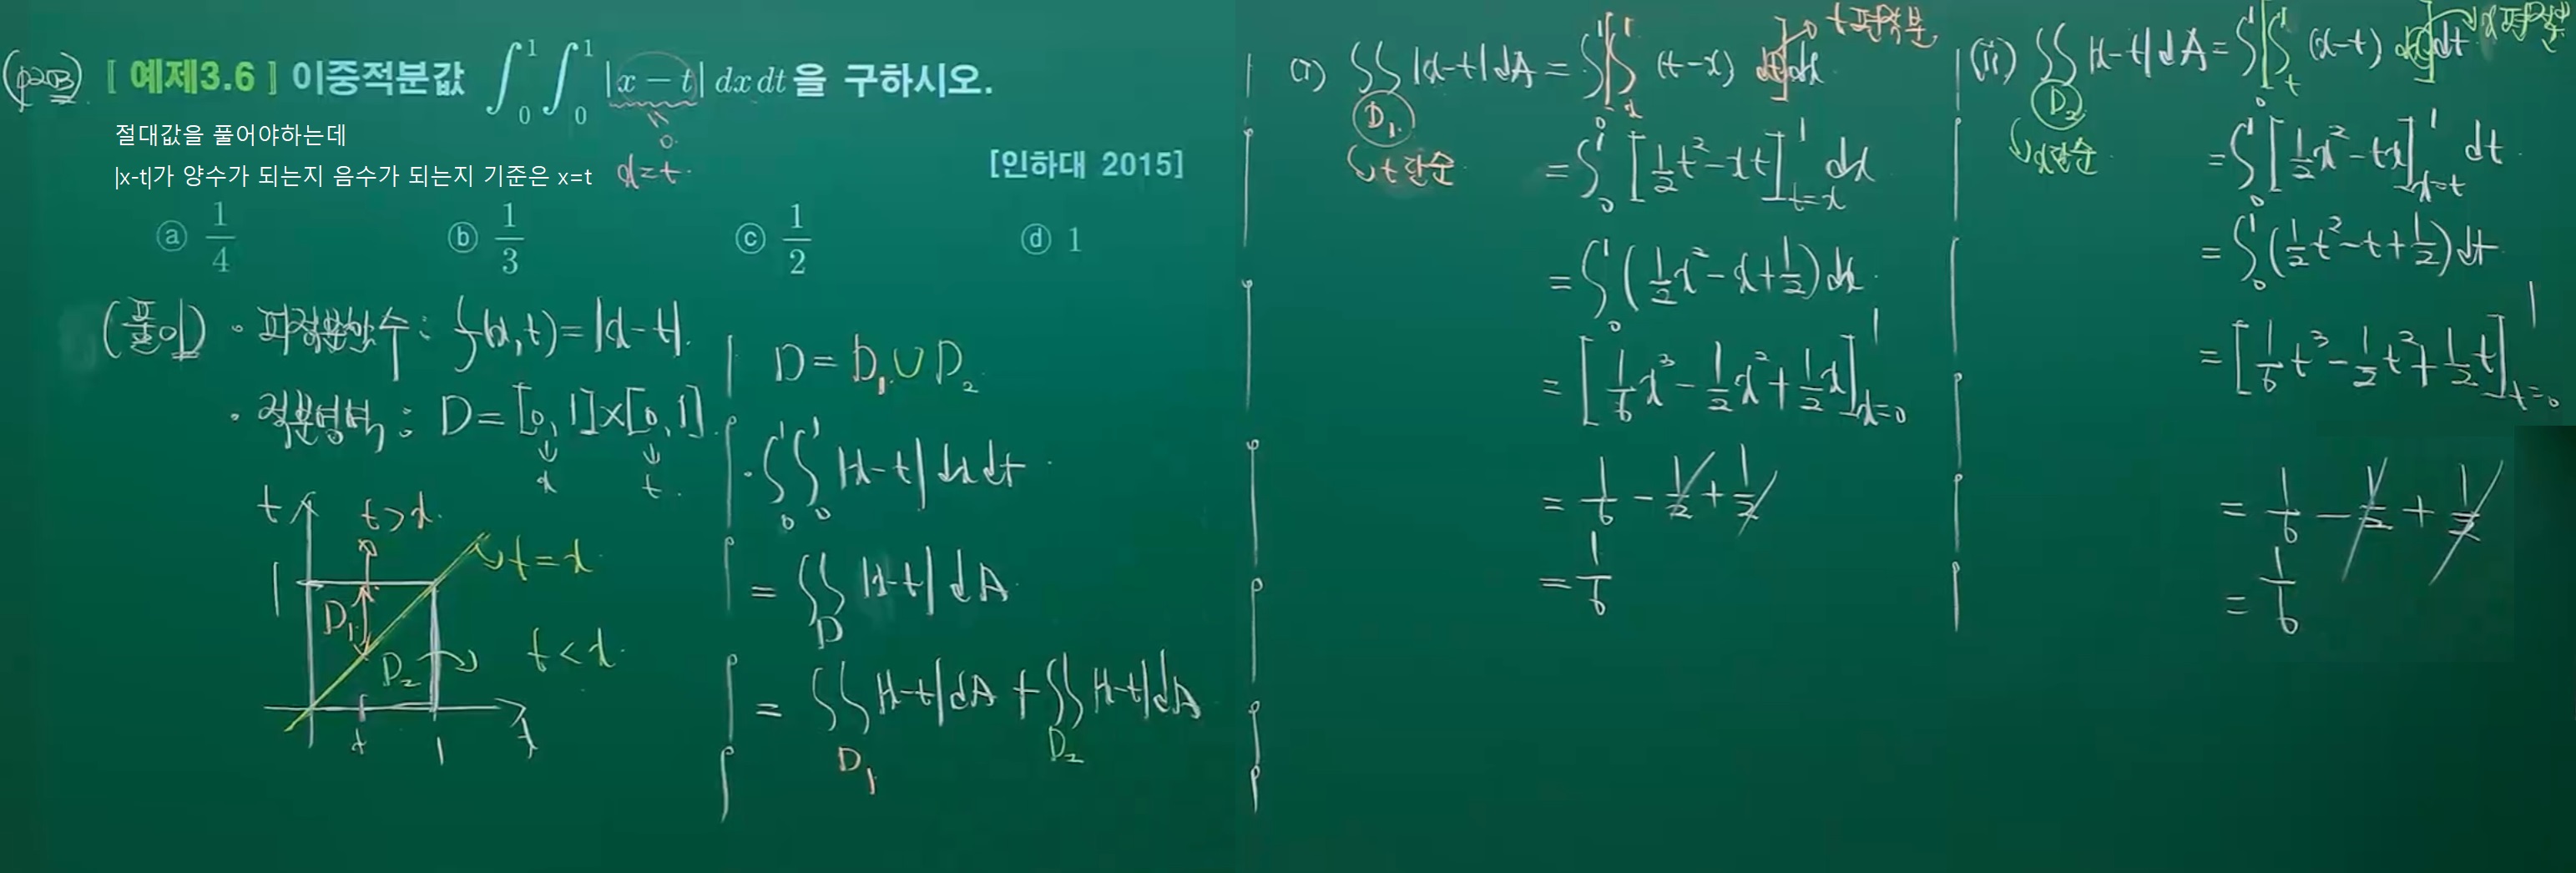 (p203) [ 예제3.6 ] 이중적분값 ∫_0^1 ∫_0^1 |x − t| dx dt 을 구하시오.
절대값을 풀어야하는데
|x-t|가 양수가 되는지 음수가 되는지 기준은 x=t
0
x=t
[인하대 2015]
ⓐ 1/4 ⓑ 1/3 ⓒ 1/2 ⓓ 1
(풀이) · 피적분함수 : f(x,t)=|x-t|.
· 적분영역 : D=[0,1]×[0,1].
↓ ↓
x t.
t
t>x.
t=x.
1
D₁
D₂
t<x.
x 1 x
D=D₁∪D₂
· ∫_0^1 ∫_0^1 |x-t| dx dt.
= ∬_D |x-t| dA
= ∬_{D₁} |x-t| dA + ∬_{D₂} |x-t| dA
(i) ∬_{D₁} |x-t| dA = ∫_0^1 [∫_x^1 (t-x) dt] dx
t 편적분
t 단순
= ∫_0^1 [1/2 t²-xt]_{t=x}^1 dx
= ∫_0^1 (1/2 x²-x+1/2) dx.
= [1/6 x³-1/2 x²+1/2 x]_{x=0}^1
= 1/6 - 1/2 + 1/2
= 1/6
(ii) ∬_{D₂} |x-t| dA = ∫_0^1 [∫_t^1 (x-t) dx] dt
x 편적분
x단순
= ∫_0^1 [1/2 x²-tx]_{x=t}^1 dt.
= ∫_0^1 (1/2 t²-t+1/2) dt
= [1/6 t³-1/2 t²+1/2 t]_{t=0}^1
= 1/6 - 1/2 + 1/2
= 1/6